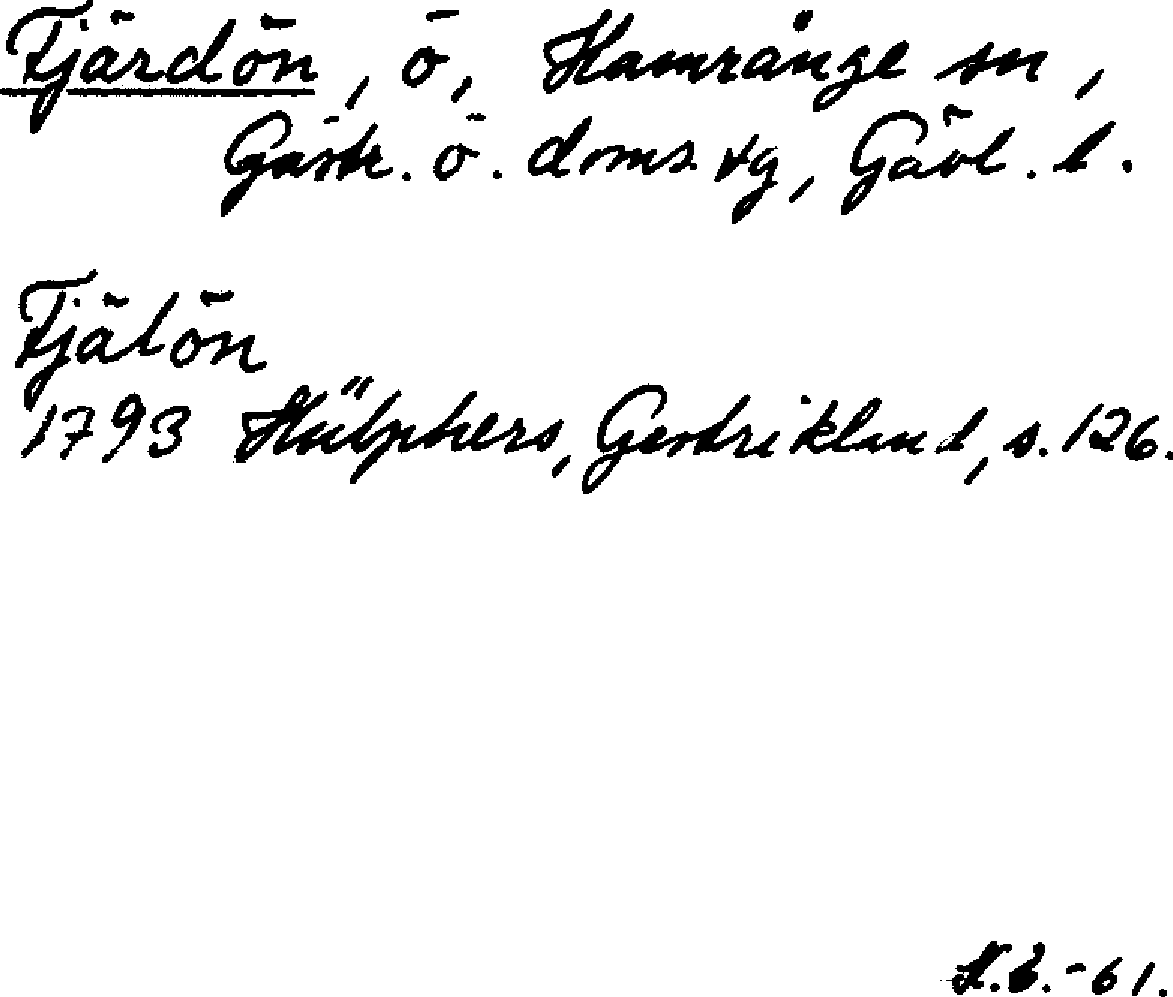 Fjärdön, ö, Hamrånge sn,
Gästr. ö. doms.vg, Gävl. l.
Fjälön
1793 Hülphers, Gestrikland, s. 126.
-61.